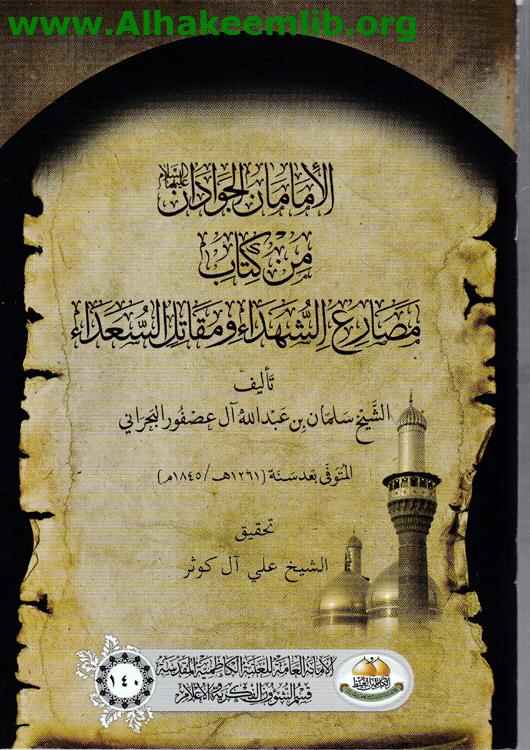 www.Alhakeemlib.org
الإمامان الجوادان عليهما السلام
من كتاب
مصارع الشهداء ومقاتل السعداء
تأليف
الشيخ سلمان بن عبد الله آل عصفور البحراني
المتوفى بعد سنة (١٢٦١هـ/١٨٤٥م)
تحقيق
الشيخ علي آل كوثر
الأمانة العامة للعتبة الكاظمية المقدسة
قسم الشؤون الفكرية والإعلام
١٤٠